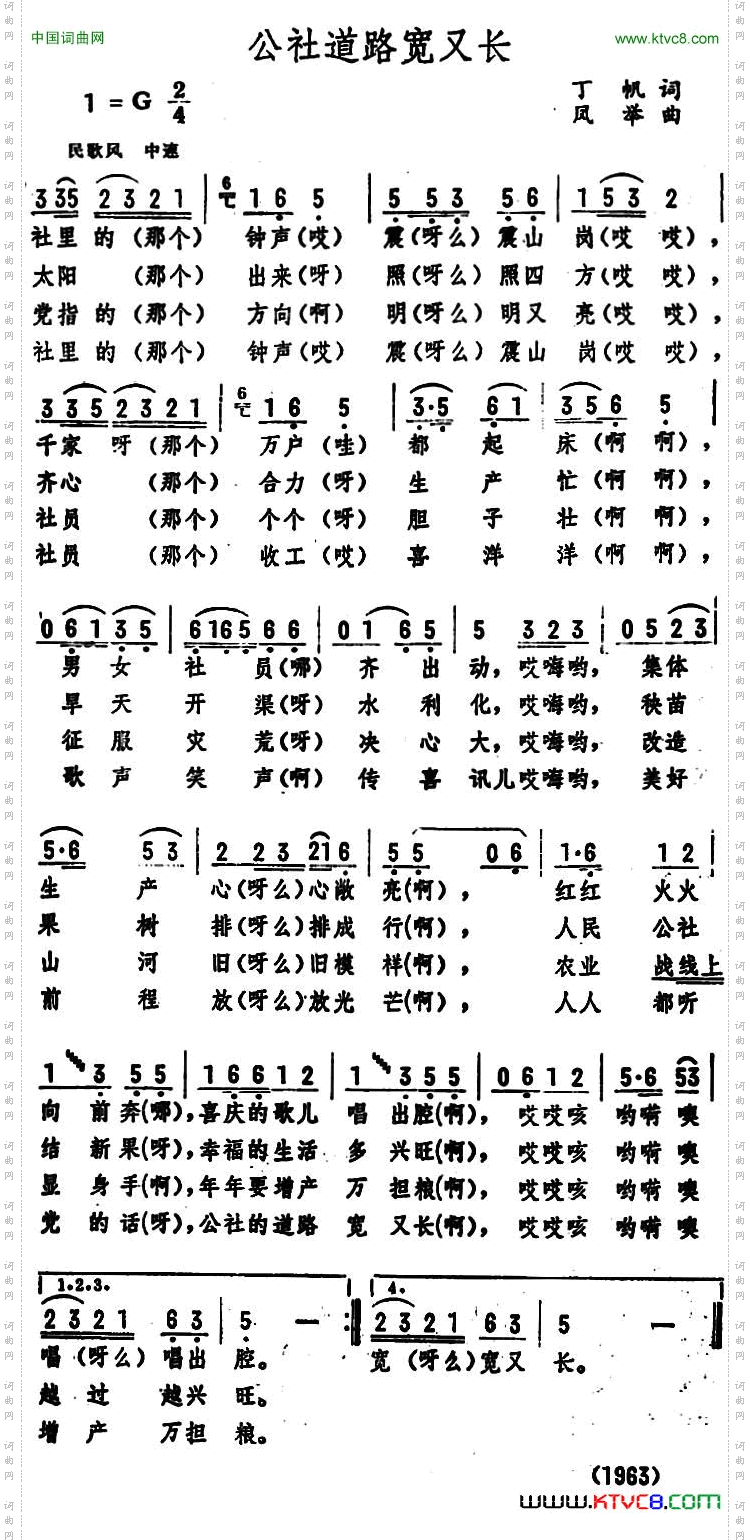 中国词曲网
公社道路宽又长
www.ktvc8.com
1=G 2/4
丁 帆 词
凤 举 曲
民歌风 中速
3 335 2321 | 16 5 | 5 53 56 | 153 2 |
社里的(那个) 钟声(哎) 震(呀么)震山 岗(哎 哎),
太阳 (那个) 出来(呀) 照(呀么)照四 方(哎 哎),
党指的(那个) 方向(啊) 明(呀么)明又 亮(哎 哎),
社里的(那个) 钟声(哎) 震(呀么)震山 岗(哎 哎),
3 35 2321 | 16 5 | 3·5 61 | 356 5 |
千家 呀(那个) 万户(哇) 都 起 床(啊 啊),
齐心 (那个) 合力(呀) 生 产 忙(啊 啊),
社员 (那个) 个个(呀) 胆 子 壮(啊 啊),
社员 (那个) 收工(哎) 喜 洋 洋(啊 啊),
0 61 35 | 6165 66 | 01 65 | 5 323 | 05 23 |
男女 社 员(哪) 齐 出 动,哎嗨哟, 集体
旱天 开 渠(呀) 水 利 化,哎嗨哟, 秧苗
征服 灾 荒(呀) 决 心 大,哎嗨哟, 改造
歌声 笑 声(啊) 传 喜 讯儿哎嗨哟, 美好
5·6 53 | 2 23 216 | 55 06 | 1·6 12 |
生 产 心(呀么)心敞 亮(啊), 红红 火火
果 树 排(呀么)排成 行(啊), 人民 公社
山 河 旧(呀么)旧模 样(啊), 农业 战线上
前 程 放(呀么)放光 芒(啊), 人人 都听
1 3 55 | 166 12 | 1 355 | 0612 | 5·6 53 |
向 前奔(哪),喜庆的歌儿 唱 出腔(啊), 哎哎咳 哟嗬噢
结 新果(呀),幸福的生活 多 兴旺(啊), 哎哎咳 哟嗬噢
显 身手(啊),年年要增产 万 担粮(啊), 哎哎咳 哟嗬噢
党 的话(呀),公社的道路 宽 又长(啊), 哎哎咳 哟嗬噢
1.2.3. 4.
2321 63 | 5 — :‖ 2321 63 | 5 — ‖
唱(呀么)唱出 腔。 宽(呀么)宽又 长。
越过 越兴 旺。
增产 万担 粮。
(1963)
www.KTVC8.COM